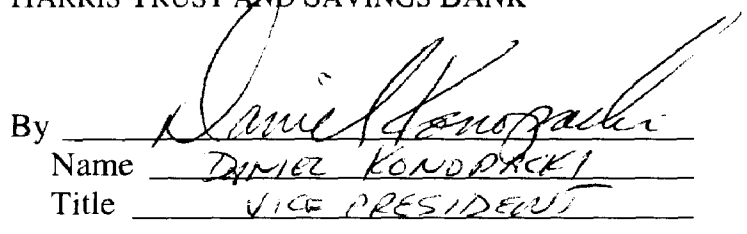 HARRIS TRUST AND SAVINGS BANK
By Daniel Konopacki
Name DANIEL KONOPACKI
Title VICE PRESIDENT